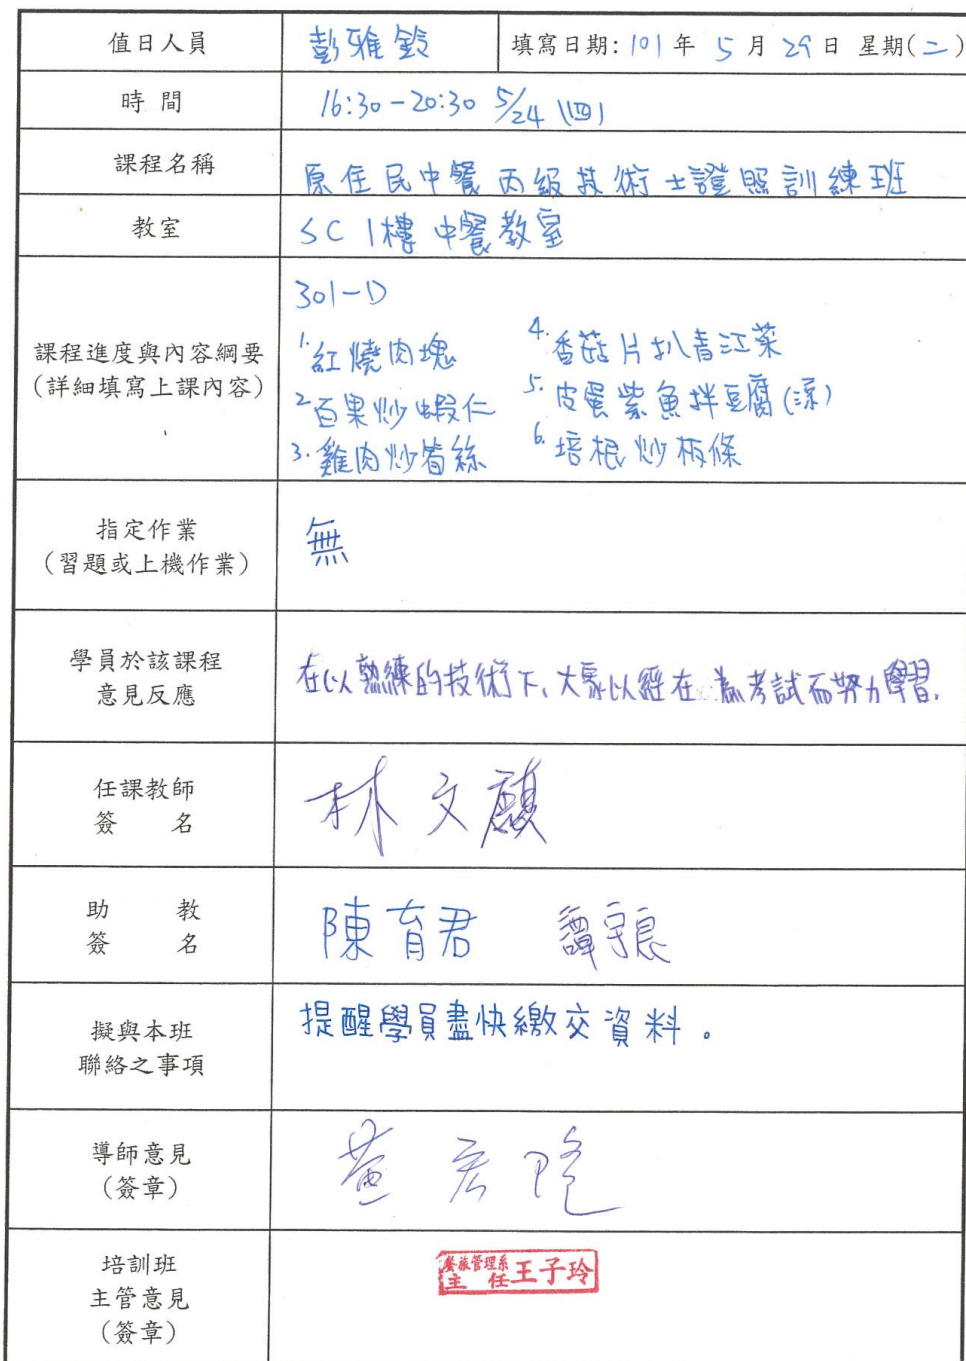 值日人員 彭雅鈴 填寫日期：101年 5月 29日 星期(二)
時 間 16:30-20:30 5/24 (四)
課程名稱 原住民中餐丙級技術士證照訓練班
教室 SC 1樓 中餐教室
課程進度與內容綱要
(詳細填寫上課內容)
301-D
1.紅燒肉塊
2.百果炒蝦仁
3.雞肉炒筍絲
4.香菇片扒青江菜
5.皮蛋紫魚拌豆腐(涼)
6.培根炒板條
指定作業
(習題或上機作業)
無
學員於該課程
意見反應
在以熟練的技術下、大家以經在為考試而努力學習.
任課教師
簽 名
林文
助 教
簽 名
陳育君 譚守良
擬與本班
聯絡之事項
提醒學員盡快繳交資料。
導師意見
(簽章)
黃宏
培訓班
主管意見
(簽章)
餐旅管理系
主 任 王子玲